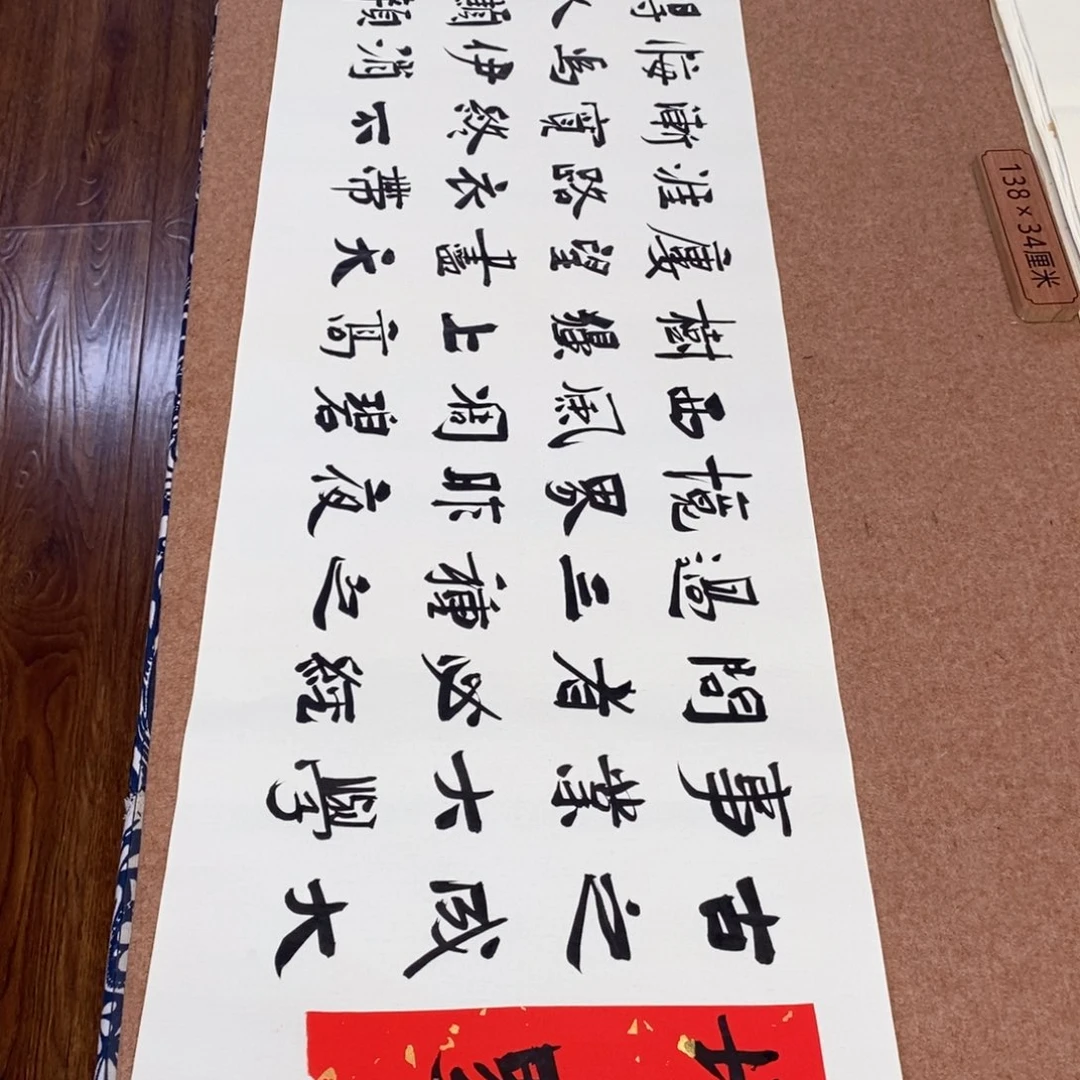 古之成大
事業大學
問者必經
過三種之
境界昨夜
西風凋碧
樹獨上高
廔望盡天
涯路衣帶
漸寬終不
悔為伊消
得人
138×34厘米